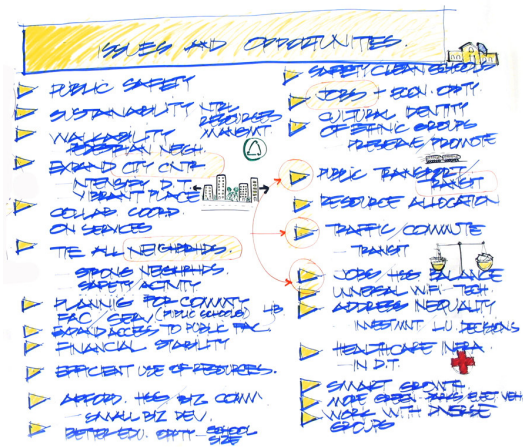 ISSUES AND OPPORTUNITIES.
PUBLIC SAFETY
SUSTAINABILITY NTRL
RESOURCES
MANGMT
WALKABILITY
PEDESTRIAN NEIGH.
EXPAND CITY CNTR
INTENSIFY D.T.
VIBRANT PLACE
COLLAB. COORD.
ON SERVICES
TIE ALL NEIGHBRHDS.
STRONG NEIGHBRHDS.
SAFETY/ACTIVITY
PLANNIG FOR COMMTY
FAC/SERV (PUBLIC SCHOOLS) LIB
EXPAND ACCESS TO PUBLIC FAC.
FINANCIAL STABILITY
EFFICIENT USE OF RESOURCES.
AFFORD. HSG/BIZ COMM.
SMALL BIZ DEV.
BETTER EDU. OPTY - SCHOOL
SIZE
SAFETY CLEAN SCHOOLS
JOBS + ECON. OPTY
CULTURAL IDENTITY
OF ETHNIC GROUPS
PRESERVE PROMOTE
PUBLIC TRANSPORT/
TRANSIT
RESOURCE ALLOCATION
TRAFFIC/COMMUTE
TRANSIT
JOBS HSG BALANCE
UNIVERSAL WIFI TECH.
ADDRESS INEQUALITY
INVESTMNT L.U. DECISIONS
HEALTHCARE INFRA
IN D.T.
SMART GROWTH.
MORE GREEN - PARKS ELECT VEH
WORK WITH DIVERSE
GROUPS